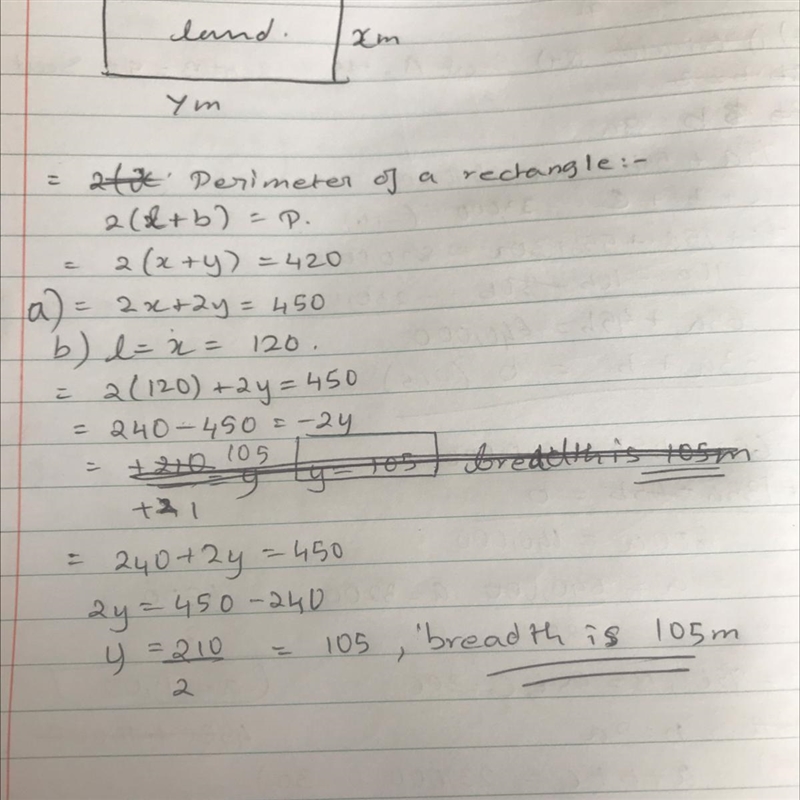 land. xm
ym
= 2(x Perimeter of a rectangle:-
2(l+b) = P.
= 2(x+y) = 420
a) = 2x+2y = 450
b) l = x = 120.
= 2(120)+2y = 450
= 240-450 = -2y
= +210 105 = y y = 105 breadth is 105m
+21
= 240+2y = 450
2y = 450-240
y = 210 = 105, breadth is 105m
2